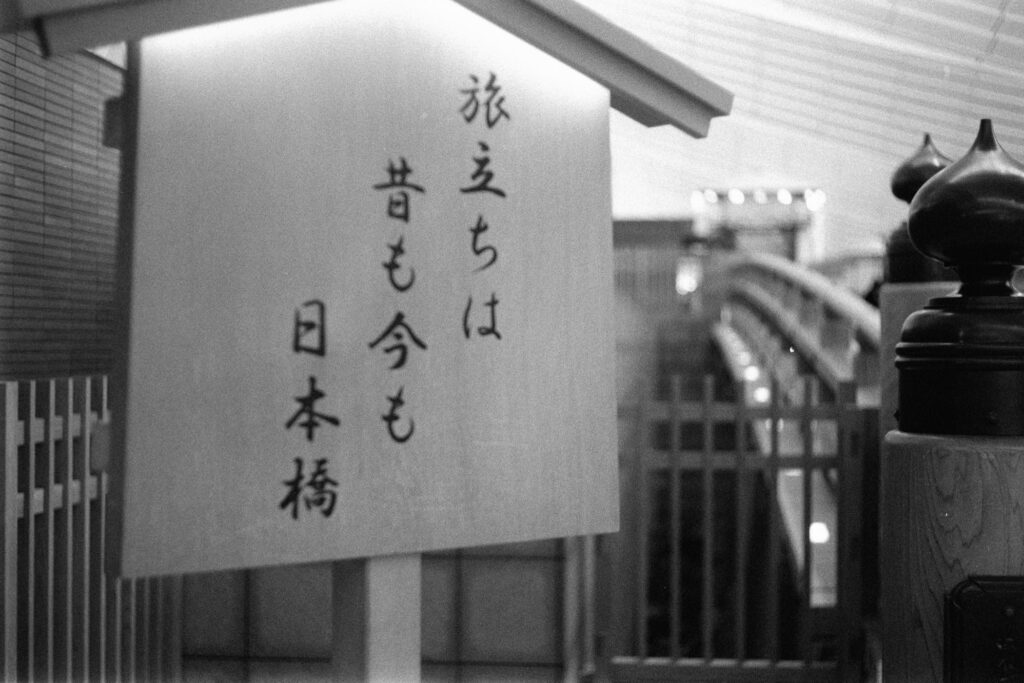 旅立ちは
昔も今も
日本橋